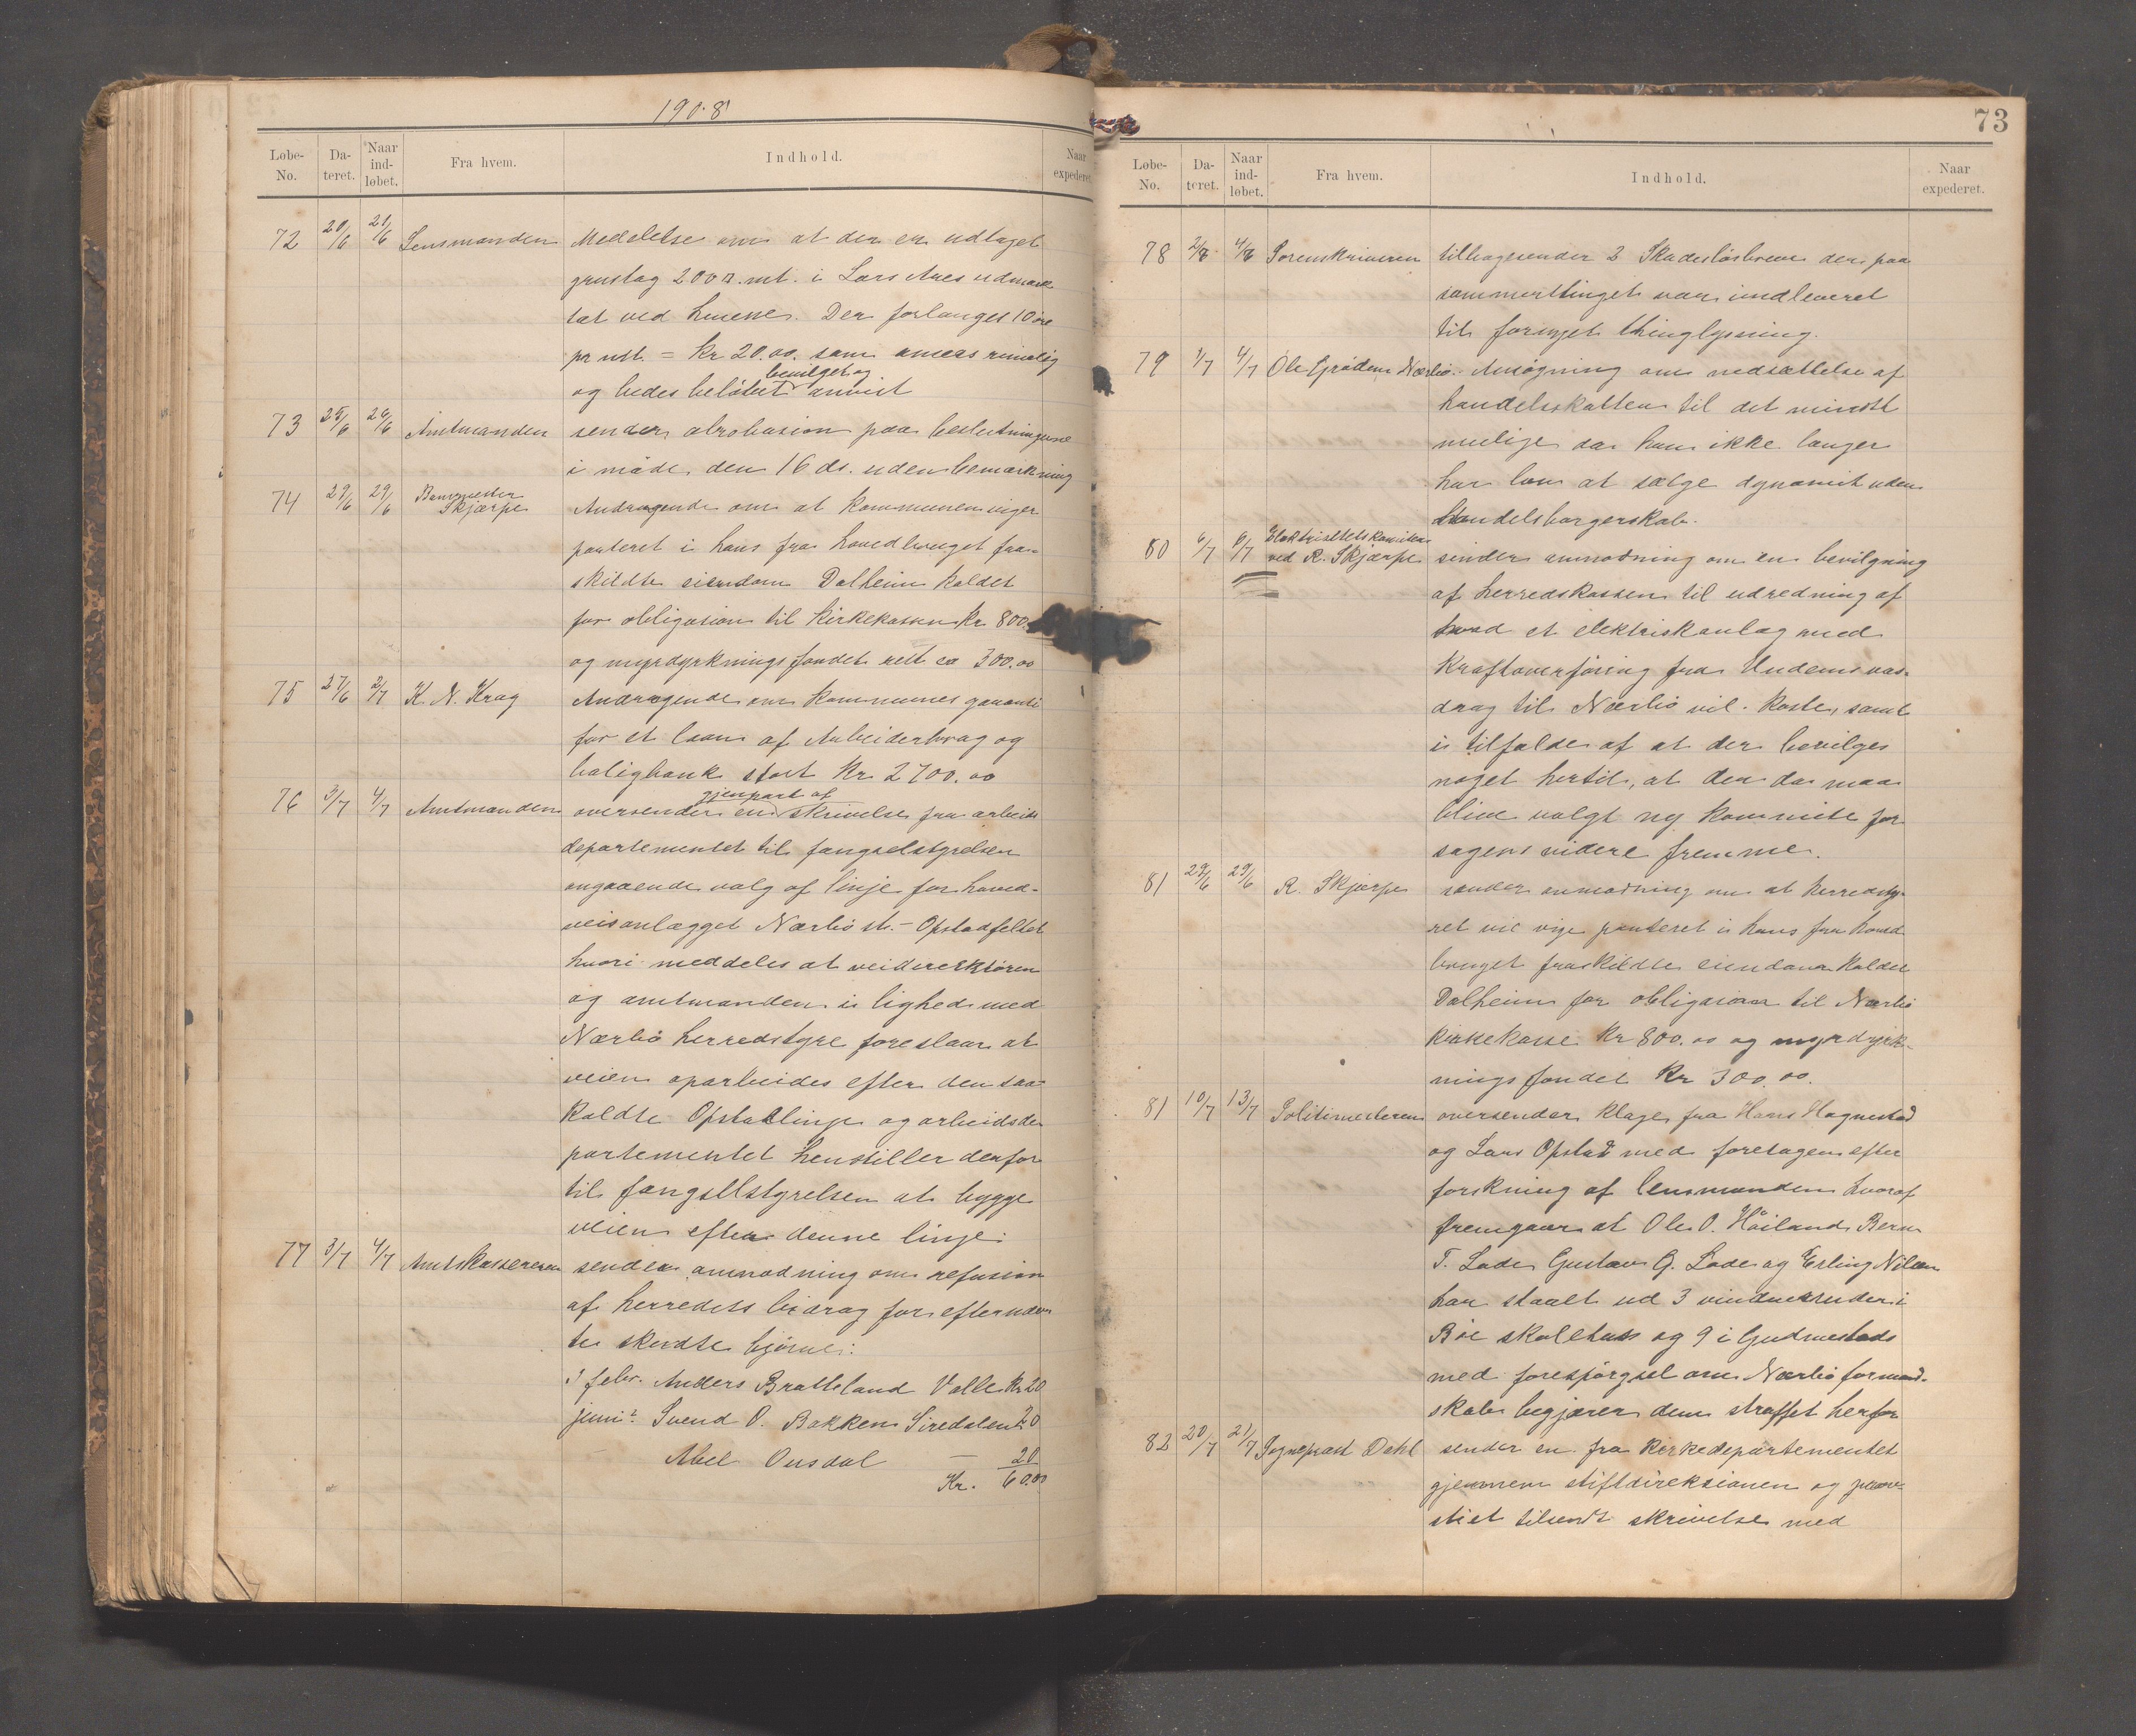 1908
Løbe-No. Da-teret. Naar ind-løbet. Fra hvem. Indhold. Naar expederet.
72 20/6 21/6 Lensmanden Meddelelse om at der er udtaget
grustag 200 □ mt. i Lars Aues udmark
tæt ved husene. Der forlanges 10 øre
pr mt. = Kr 20.00. som ansees rimelig
og bedes beløbet bevilget og anvist
73 25/6 26/6 Amtmanden sender abrobasion paa beslutningerne
i møde den 16 ds. uden bemærkning
74 29/6 29/6 Skjærpe Andragende om at kommunen viger
panteret i hans fra hovedbruget fra-
skildte eiendom Dalheim kaldet
for obligasion til kirkekassen kr 800.
og myrdyrkningsfondet rest ca 300.00
75 27/6 2/7 K. N. Krag Andragende om kommunes garanti
for et laan af Arbeiderbrug og
boligbank stort Kr. 2700.00
76 3/7 4/7 Amtmanden oversender en gjenpart af skrivelse fra arbeids
departementet til fængselstyrelsen
angaaende valg af linje for hoved-
veisanlægget Nærbø st. - Opstadfeltet
hvori meddeles at veidirektøren
og amtmanden i lighed med
Nærbø herredstyre foreslaar at
veien oparbeides efter den saa
kaldte Opstadlinje og arbeidsde
partementet henstiller derfor
til fængselstyrelsen at bygge
veien efter denne linje.
77 3/7 4/7 Amtskassereren sender anmodning om refusion
af herredets bidrag for efternævn
te skudte bjørne:
i febr. Anders Bratteland Valle Kr 20
juni Svend O. Bakken Siredalen 20
— Abel Ousdal — 20
Kr. 60.00
73
Løbe-No. Da-teret. Naar ind-løbet. Fra hvem. Indhold. Naar expederet.
78 2/8 4/8 Sorenskriveren tilbagesender 2 Skadesløsbreve der paa
sommertinget var indleveret
til fornyet thinglysning.
79 1/7 4/7 Ole Grødem Nærbø. Ansøgning om nedsættelse af
handelsskatten til det mindst
mulige da han ikke længer
har lov at sælge dynamit uden
Handelsborgerskab.
80 6/7 6/7 Elektrisitetskomiteen
ved R. Skjærpe sender anmodning om en bevilgning
af herredskassen til udredning af
hvad et elektriskanlæg med
Kraftoverføring fra Undems vas-
drag til Nærbø vil koste, samt
i tilfælde af at der bevilges
noget hertil, at der da maa
blive valgt ny kommite for
sagens videre fremme.
81 29/6 29/6 R. Skjærpe sender anmodning om at herredsty-
ret vil vige panteret i hans fra hoved
bruget fraskildte eiendom kaldet
Dalheim for obligasion til Nærbø
kirkekasse Kr 800.00 og myrdyrk-
ningsfondet Kr 300.00.
81 10/7 13/7 Politimesteren oversender klage fra Hans Hognestad
og Lars Opstad med foretagen efter
forskning af lensmanden hvoraf
fremgaar at Ole O. Høiland, Bern
T. Lode Gustav G. Lode og Erling Nilsen
har slaaet ud 3 vindusruder i
Bøe skolehus og 9 i Gudmestads
med forespørgsel om Nærbø formand-
skab begjærer dem straffet herfor
82 20/7 21/7 Sogneprest Dahl sender en fra kirkedepartementet
gjennem stiftdireksionen og prov-
stiet tilsendt skrivelse med